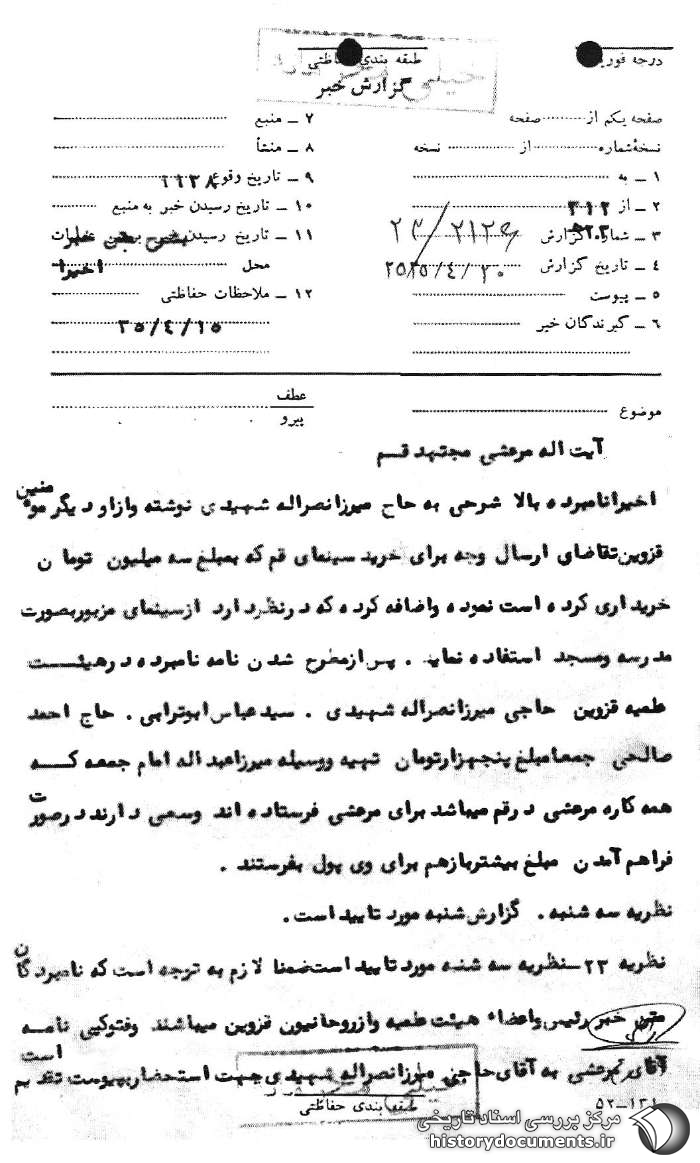 درجه فوریت
طبقه بندی حفاظتی
خیلی محرمانه
گزارش خبر
صفحه یکم از صفحه
نسخهٔ شماره از نسخه
۱ ـ به
۲ ـ از ۳۱۲
۳ ـ شماره گزارش
۴ ـ تاریخ گزارش ۲۵۳۵/۴/۲۰
۵ ـ پیوست
۶ ـ گیرندگان خبر
۷ ـ منبع
۸ ـ منشأ
۹ ـ تاریخ وقوع
۱۰ ـ تاریخ رسیدن خبر به منبع
۱۱ ـ تاریخ رسیدن خبر به عملیات
محل اخیرا
۱۲ ـ ملاحظات حفاظتی
۳۵/۴/۱۵
موضوع
عطف
پیرو
آیت اله مرعشی مجتهد قم
اخیرا نامبرده بالا شرحی به حاج میرزا نصراله شهیدی نوشته و از او دیگر مومنین
قزوین تقاضای ارسال وجه برای خرید سینمای قم که بمبلغ سه میلیون تومان
خریداری کرده است نموده و اضافه کرده که در نظر دارد از سینمای مزبور بصورت
مدرسه و مسجد استفاده نماید . پس از مطرح شدن نامه نامبرده در هیئت
علمیه قزوین حاجی میرزا نصراله شهیدی . سید عباس ابوترابی . حاج احمد
صالحی جمعا مبلغ پنجهزار تومان تهیه و وسیله میرزا عبداله امام جمعه که
همه کاره مرعشی در قم میباشد برای مرعشی فرستاده اند و سعی دارند در صورت
فراهم آمدن مبلغ بیشتر باز هم برای وی پول بفرستند .
نظریه سه شنبه . گزارش شنبه مورد تایید است .
نظریه ۲۳ـ نظریه سه شنبه مورد تایید است ضمنا لازم به توجه است که نامبردگان
متن خبر رئیس و اعضاء هیئت علمیه و از روحانیون قزوین میباشند و فتوکپی نامه
آقای مرعشی به آقای حاجی میرزا نصراله شهیدی جهت استحضار بپیوست تقدیم است
طبقه بندی حفاظتی
۵۲ـ۱۳۱
مرکز بررسی اسناد تاریخی
historydocuments.ir